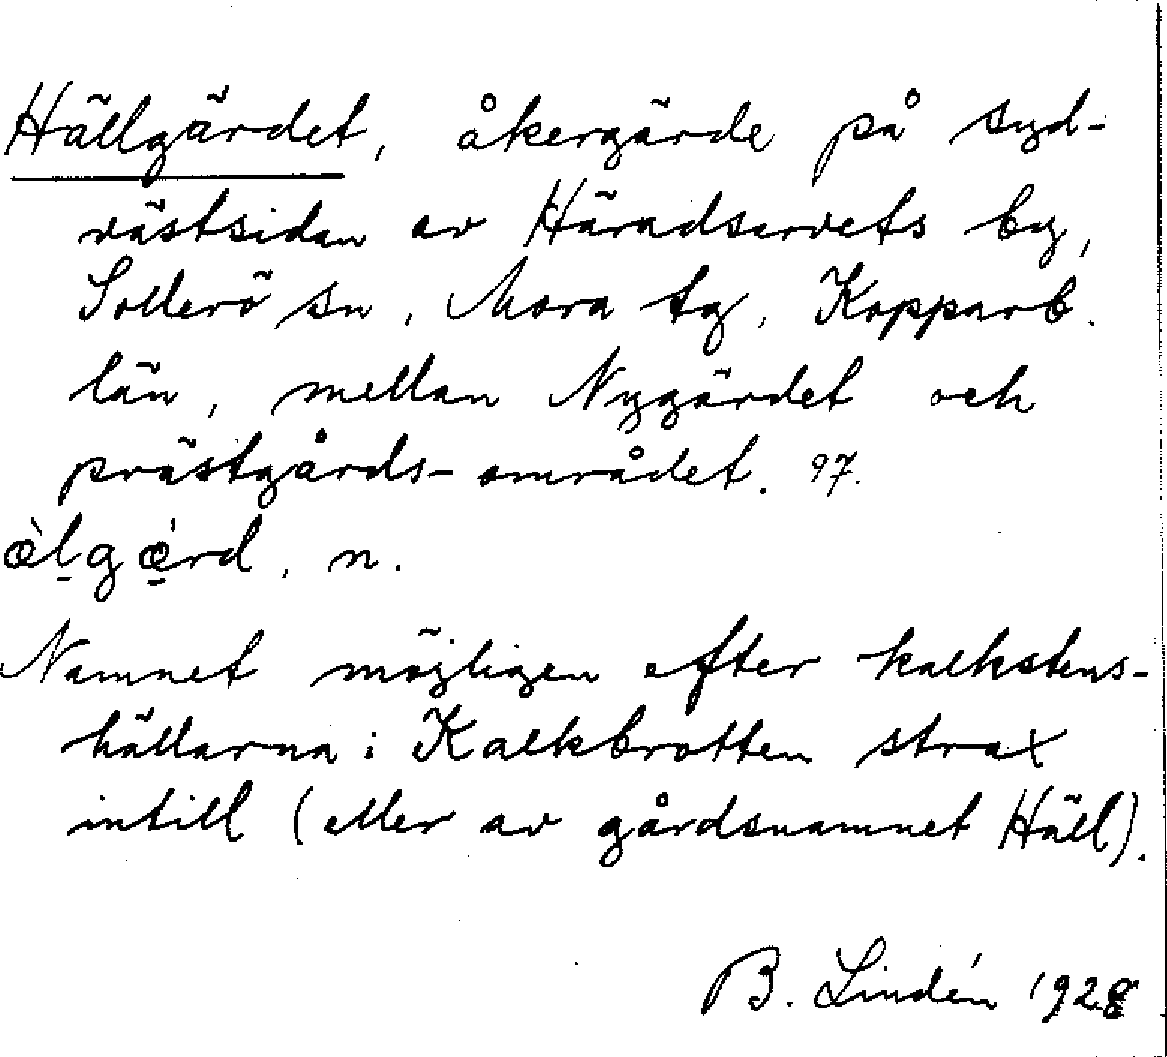 Hällgärdet, åkergärde på syd-
västsidan av Häradsarvets by,
Sollerö sn, Mora tg, Kopparb.
län, mellan Nygärdet och
prästgårds-området. 97.
æ̀l̠gæ̠̀rd, n.
Namnet möjligen efter kalkstens-
hällarna i Kalkbrotten strax
intill (eller av gårdsnamnet Häll).
B. Lindén 1928